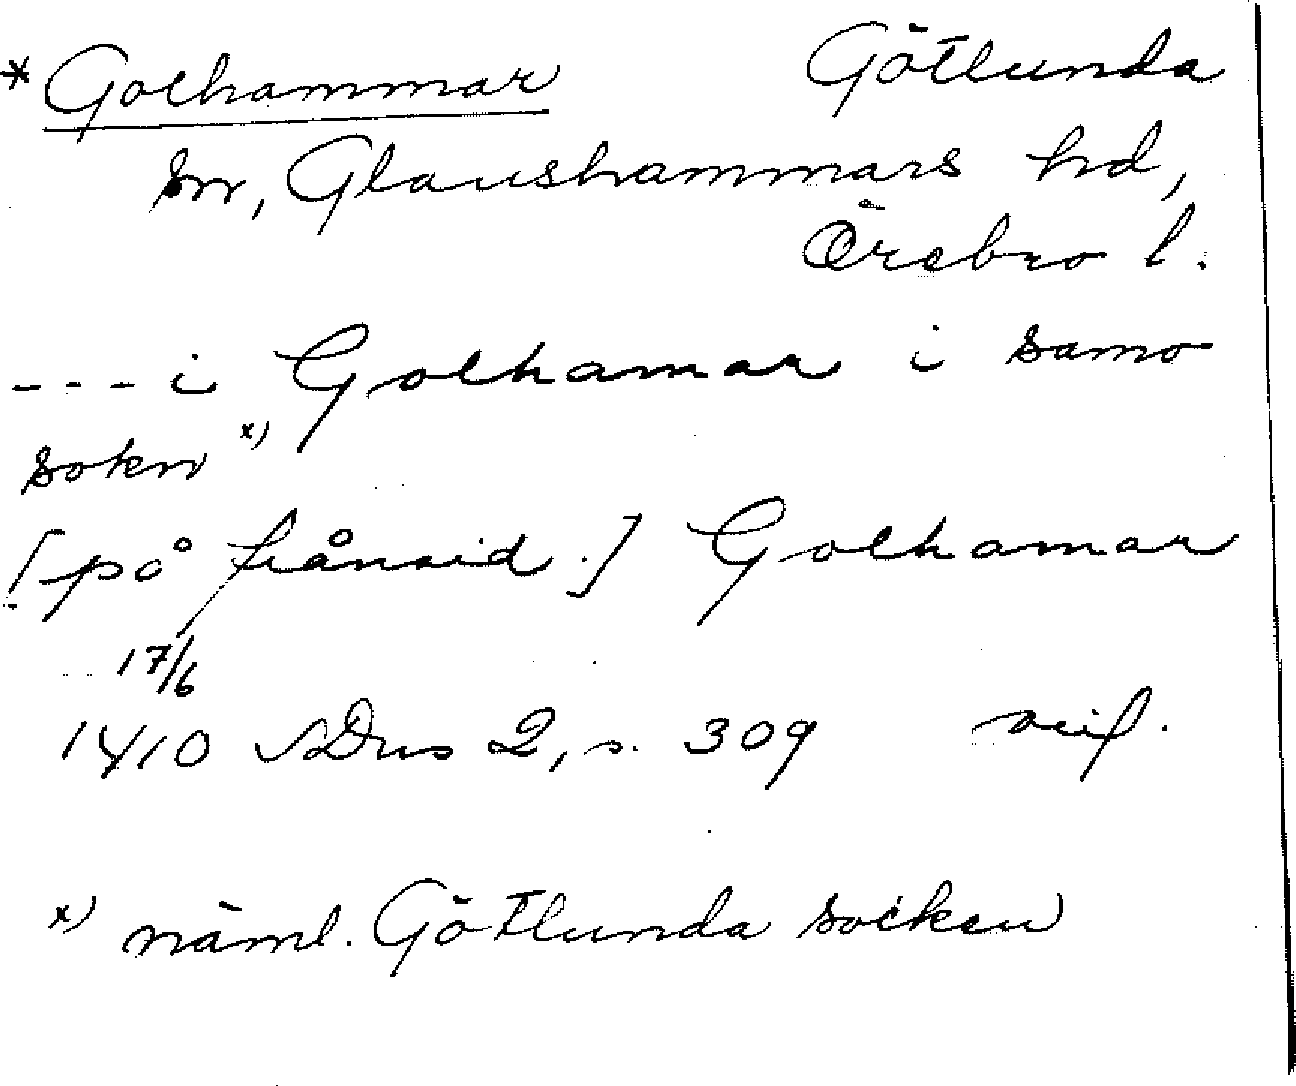 * Golhammar Götlunda
sn, Glanshammars hd,
Örebro l.
--- i Golhamar i samo
sokn x)
[på frånsid.] Golhamar
17/6
1410 SDns 2, s. 309 avf.
x) näml. Götlunda socken